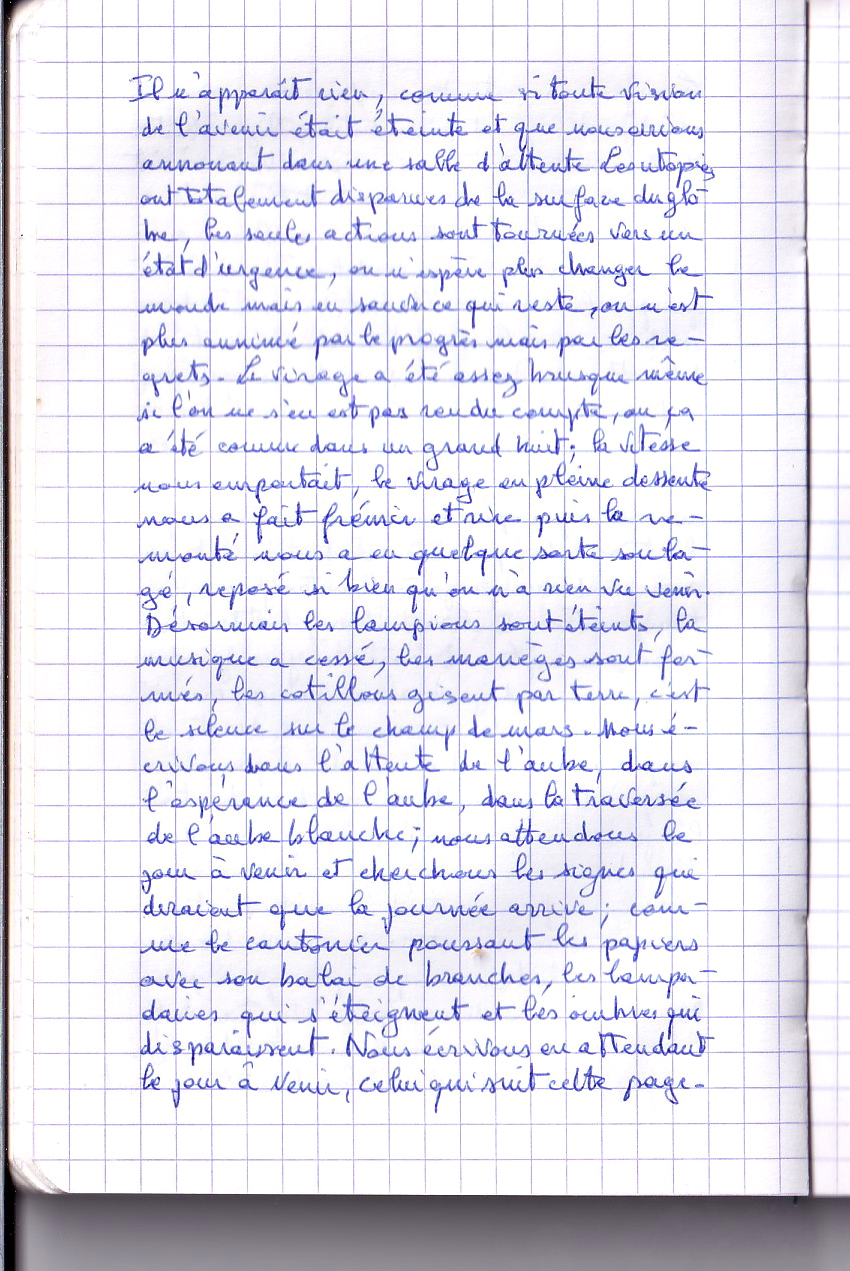 Il n'apparaît rien, comme si toute vision
de l'avenir était éteinte et que nous
annonant dans une salle d'attente Les utopies
ont totalement disparues de la surface du glo
be, les seules actions sont tournées vers un
état d'urgence, on n'espère plus changer le
monde mais en ce qui reste, on n'est
plus annimé par le progrès mais par les re-
grets. Le virage a été assez brusque même
si l'on ne s'en est pas rendu compte, ou ça
a été comme dans un grand huit; la vitesse
nous emportait, le virage en pleine dessente
nous a fait frémir et rire puis la re-
monté nous a en quelque sorte soula-
gé, reposé si bien qu'on n'a rien vu venir.
Désormais les lampions sont éteints, la
musique a cessé, les manèges sont fer-
més, les cotillons gisent par terre, c'est
le silence sur le champ de mars. Nous é-
crivons dans l'attente de l'aube, dans
l'espérance de l'aube, dans la traversée
de l'aube blanche; nous attendons le
jour à venir et cherchons les signes qui
diraient que la journée arrive; com-
me le cantonier poussant les papiers
avec son balai de branches, les lampa-
daires qui s'éteignent et les ombres qui
disparaissent. Nous écrivons en attendant
le jour à venir, celui qui suit cette page.